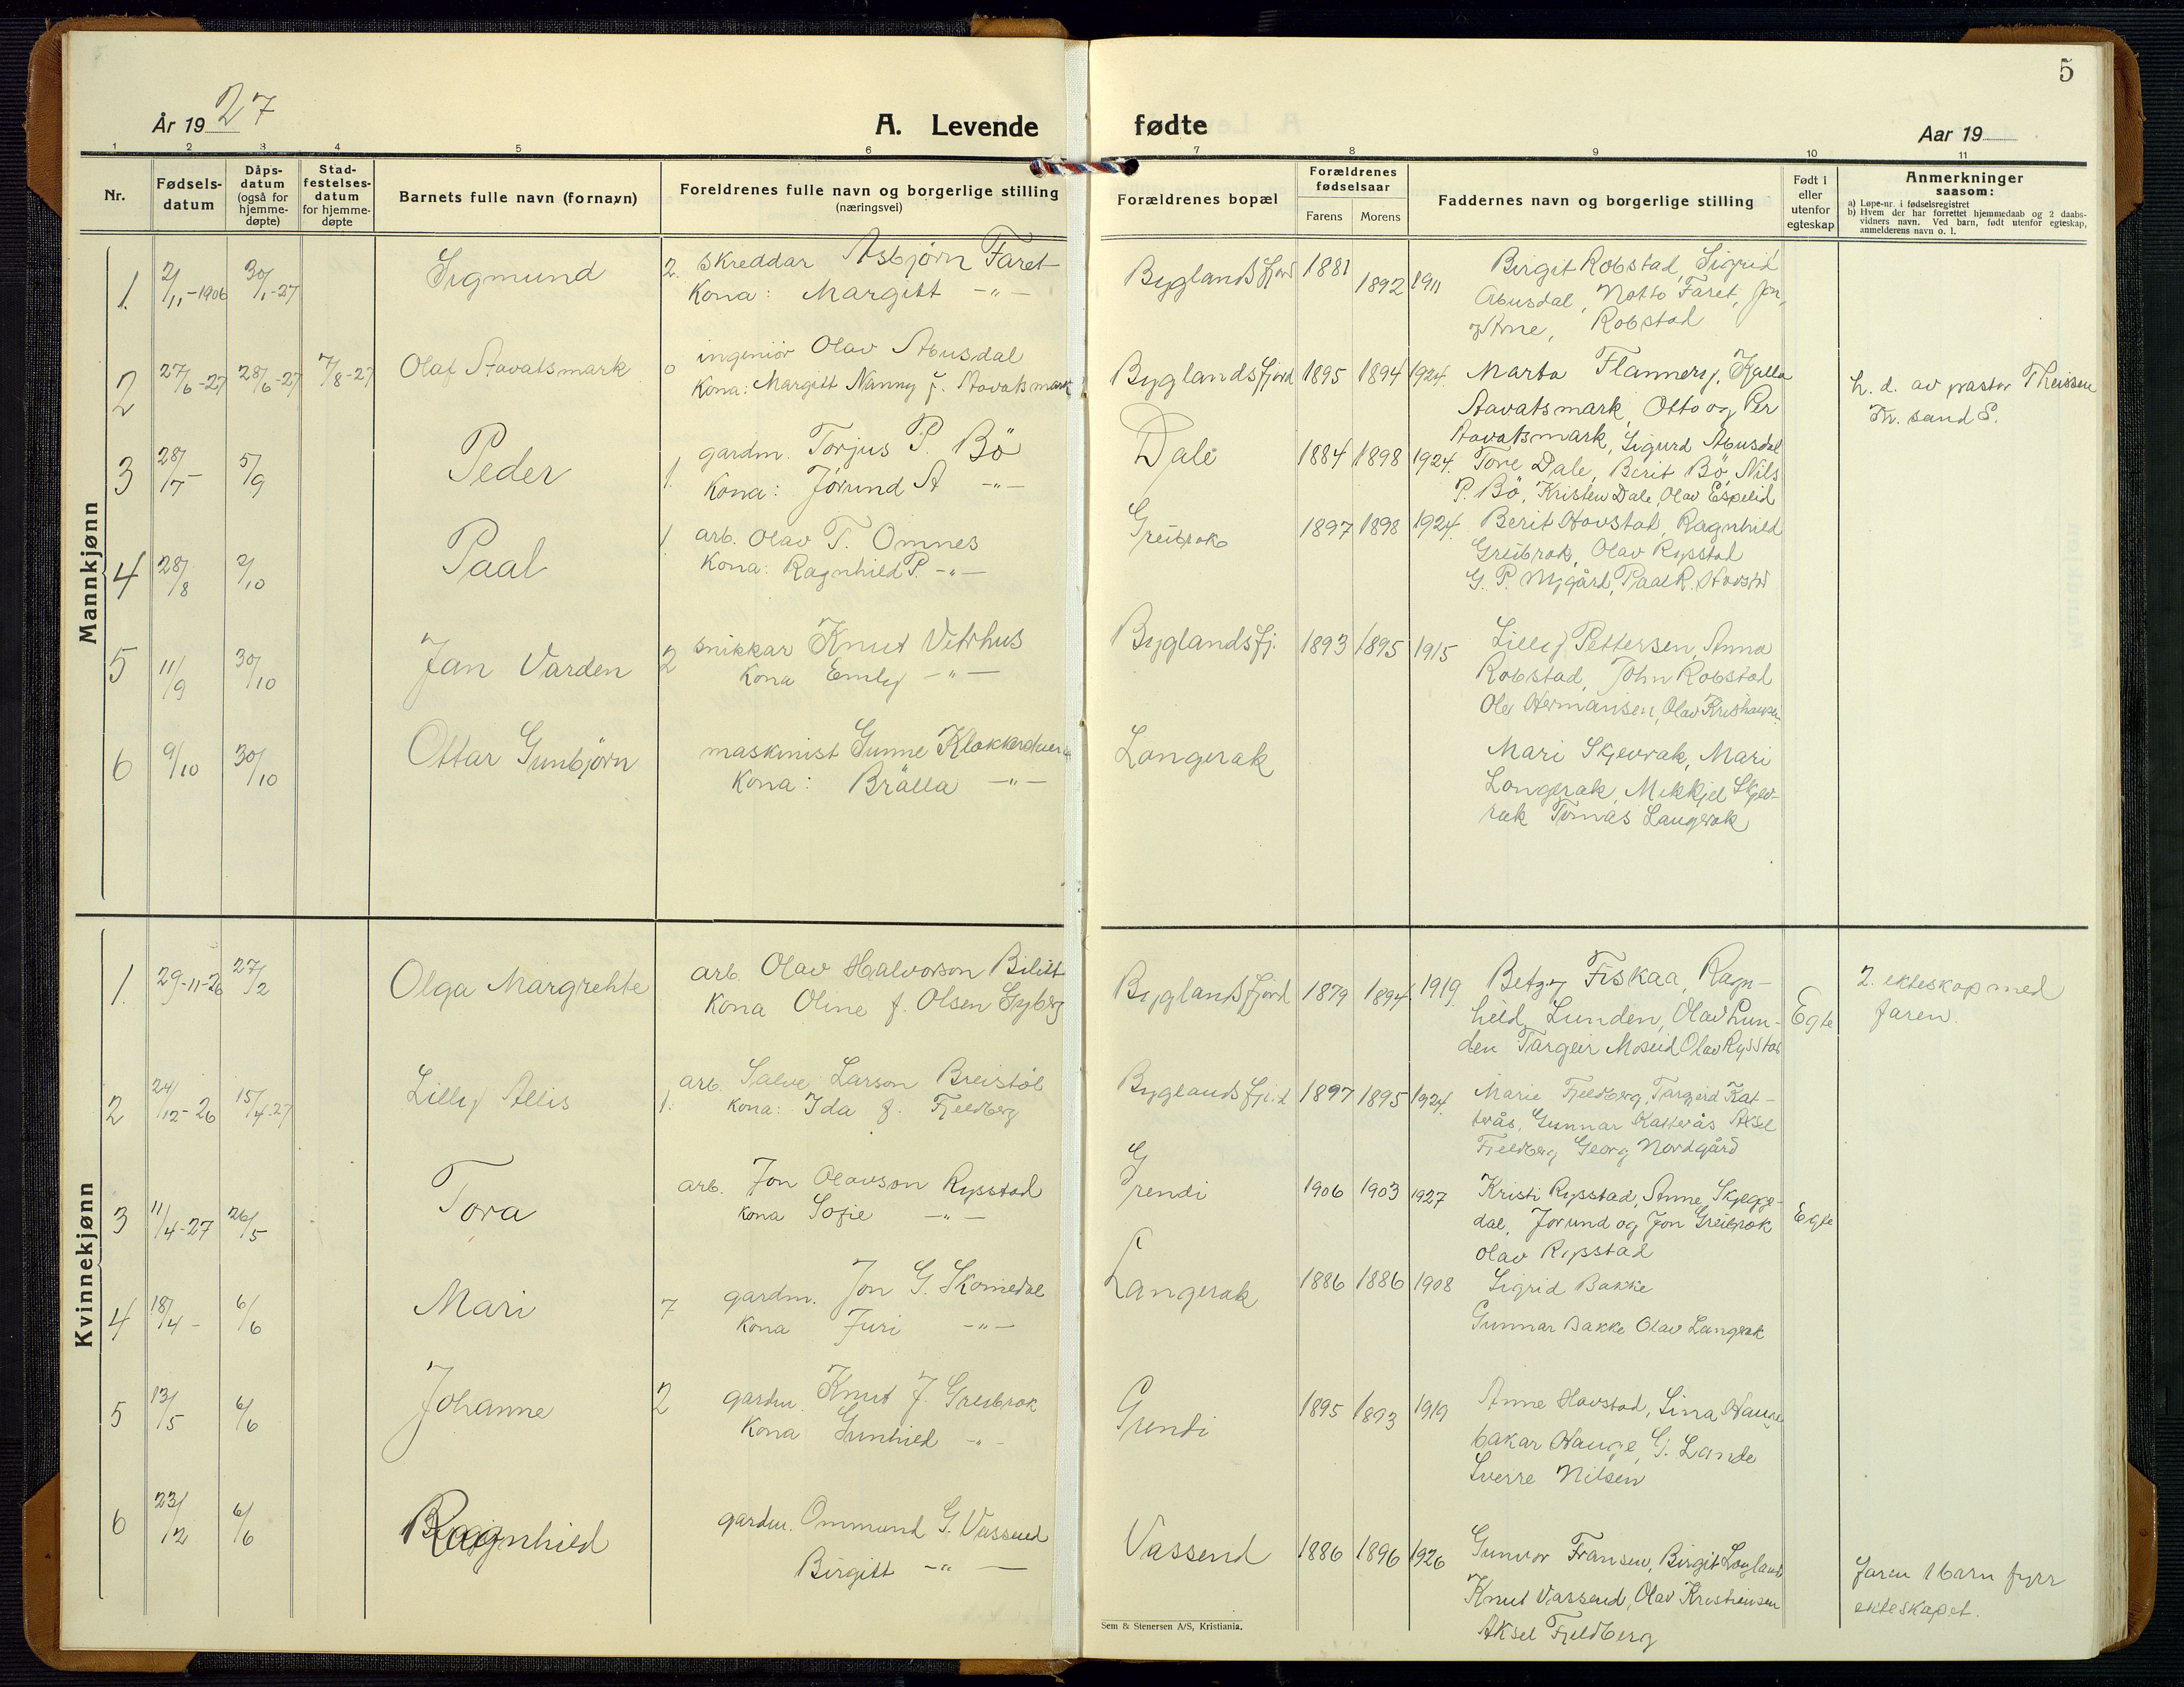 5
År 1927
A. Levende fødte
Aar 19
1 2 3 4 5 6 7 8 9 10 11
Nr.
Fødsels-
datum
Dåps-
datum
(også for
hjemme-
døpte)
Stad-
festelses-
datum
for hjemme-
døpte
Barnets fulle navn (fornavn)
Foreldrenes fulle navn og borgerlige stilling
(næringsvei)
Forældrenes bopæl
Forældrenes
fødselsaar
Farens Morens
Faddernes navn og borgerlige stilling
Født i
eller
utenfor
egteskap
Anmerkninger
saasom:
a) Løpe-nr. i fødselsregistret
b) Hvem der har forrettet hjemmedaab og 2 daabs-
vidners navn. Ved barn, født utenfor egteskap,
anmelderens navn o. l.
Mannkjønn
1. 2/11-1906 30/1-27 Sigmund 2. Skreddar Asbjørn Faret
Kona: Margitt -"-
Byglandsfjord 1881 1892 1911 Birgit Robstad, Sigrid
Abusdal, Notto Faret, Jon,
Arne, Robstad
2 27/6-27 28/6-27 7/8-27 Olaf Stavatsmark 0 ingeniør Olav Abusdal
Kona: Margitt Nanny f. Stavatsmark
Byglandsfjord 1895 1894 1924. Marta Flannery, Kalla
Stavatsmark, Otto og Per
Stavatsmark, Sigurd Abusdal
h. d. av pastor Theissen
Kr. sand S.
3 28/7- 5/9 Peder 1. gardm. Torjus P. Bö
Kona: Jørund A -"-
Dale 1884 1898 1924. Tore Dale, Berit Bö, Nils
P. Bö, Kristen Dale, Olav Espelid
4 28/8 2/10 Paal 1 arb. Olav T. Omnes
Kona: Ragnhild P. -"-
Greibrok 1897 1898 1924. Berit Hovstad, Ragnhild
Greibrok, Olav Rysstad
G. P. Nygård, Paal R. Hovstad
5 11/9 30/10 Jan Varden 2 snikkar Knut Vetrhus
Kona Emly -"-
Byglandsfj. 1893 1895 1915 Lilly Pettersen, Anna
Robstad, John Robstad
Ole Hermansen, Olav
6 9/10 30/10 Ottar Gunbjørn maskinist Gunne
Kona: Brälla -"-
Langerak Mari Skjevrak, Mari
Langerak, Mikkjel Skjev-
rak Tomas Langerak
Kvinnekjønn
1. 29-11-26 27/2 Olga Margrehte arb. Olav Halvorson Bilitt
Kona Oline f. Olsen Gyberg
Byglandsfjord 1879 1894 1919. Betzy Fiskaa, Ragn-
hild Lunden, Olav Lun-
den Targeir Moseid Olav Rysstad
Egte
2. ekteskap med
faren.
2 24/12-26 15/4-27 Lilly Allis 1. arb. Salve Larson Breistöl
Kona: Ida f. Fjeldberg
Byglandsfjord 1897 1895 1924. Marie Fjeldberg, Targjerd Kat-
terås, Gunnar Katterås Aksel
Fjeldberg Georg Nordgård
3 11/4-27 26/5 Tora arb. Jon Olavson Rysstad
Kona Sofie -"-
Grendi 1906 1903 1927 Kristi Rysstad, Anne Skjegge-
dal, Jorund og Jon Greibrok
Olav Rysstad
Egte
4 18/4- 6/6 Mari 7 gardm. Jon G. Skomedal
Kona Juri -"-
Langerak 1886 1886 1908 Sigrid Bakke
Gunnar Bakke Olav Langrak
5 13/5 6/6 Johanne 2 gardm. Knut J. Greibrok
Kona Gunhild -"-
Grendi 1895 1893 1919 Anne Hovstad, Lina Hauge
bakar Hauge, G. Lande
Sverre Nilsen
6 23/12 6/6 Ragnhild gardm. Ommund G. Vassend
Birgitt -"-
Vassend 1886 1896 1926 Gunvor Fransen, Birgit Longland
Knut Vassend, Olav Kristiansen
Aksel Fjeldberg
Faren 1 barn fyrr
ekteskapet.
Sem & Stenersen A/S, Kristiania.